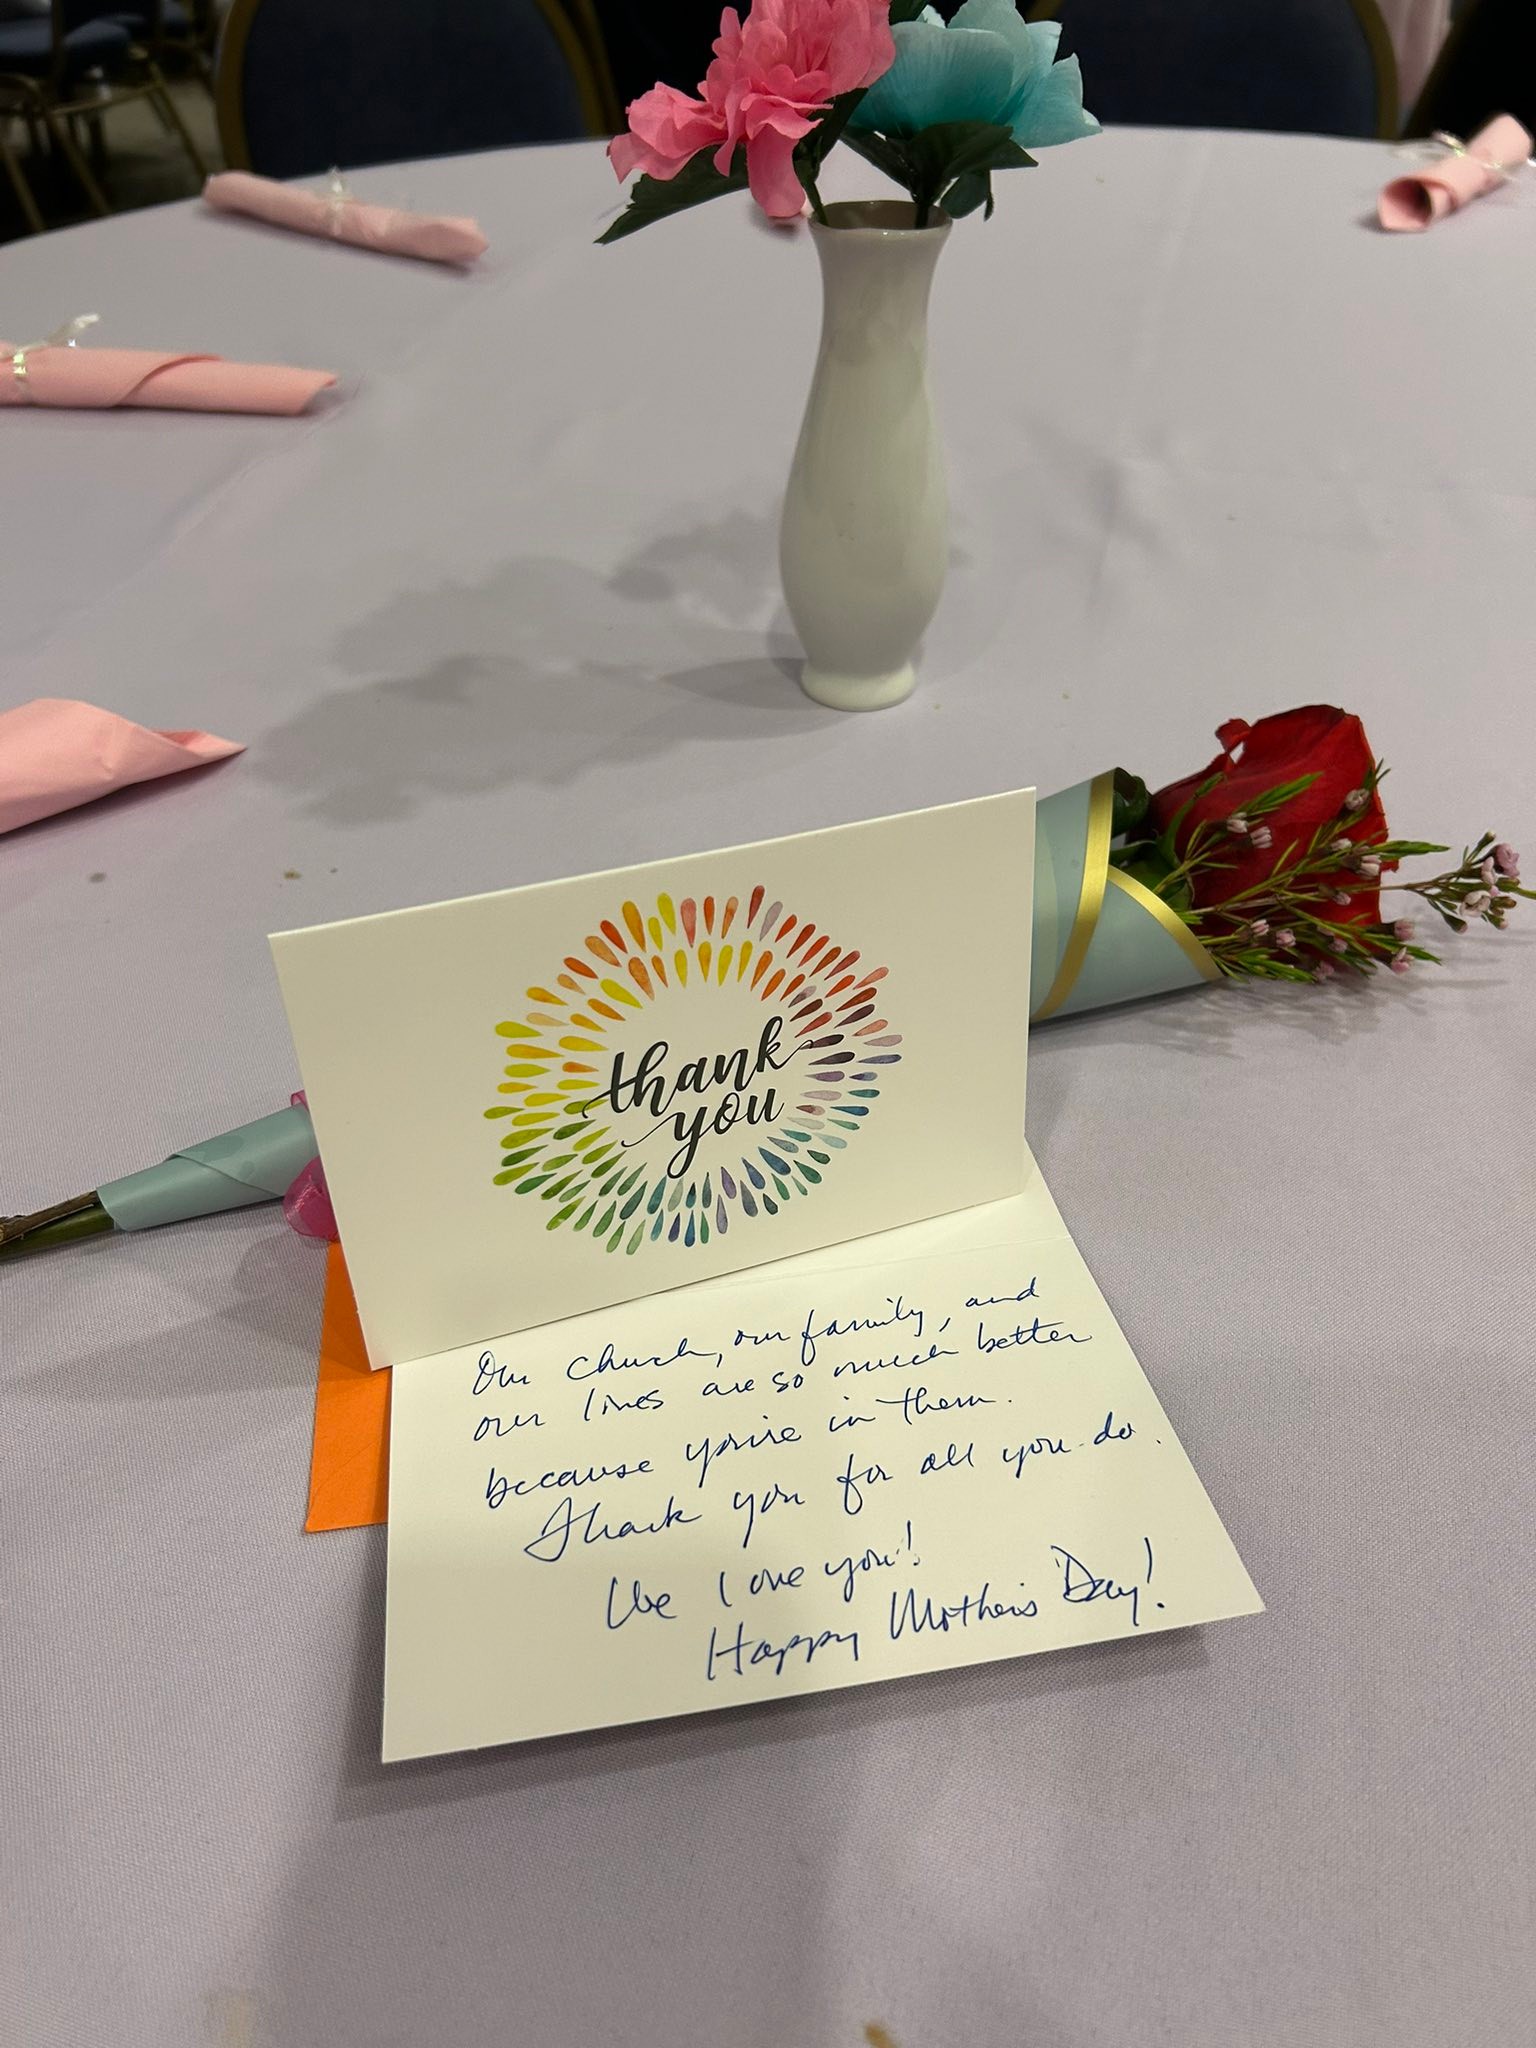 thank
you
Our church, our family, and
our lives are so much better
because you're in them.
Thank you for all you do.
We love you!
Happy Mother's Day!